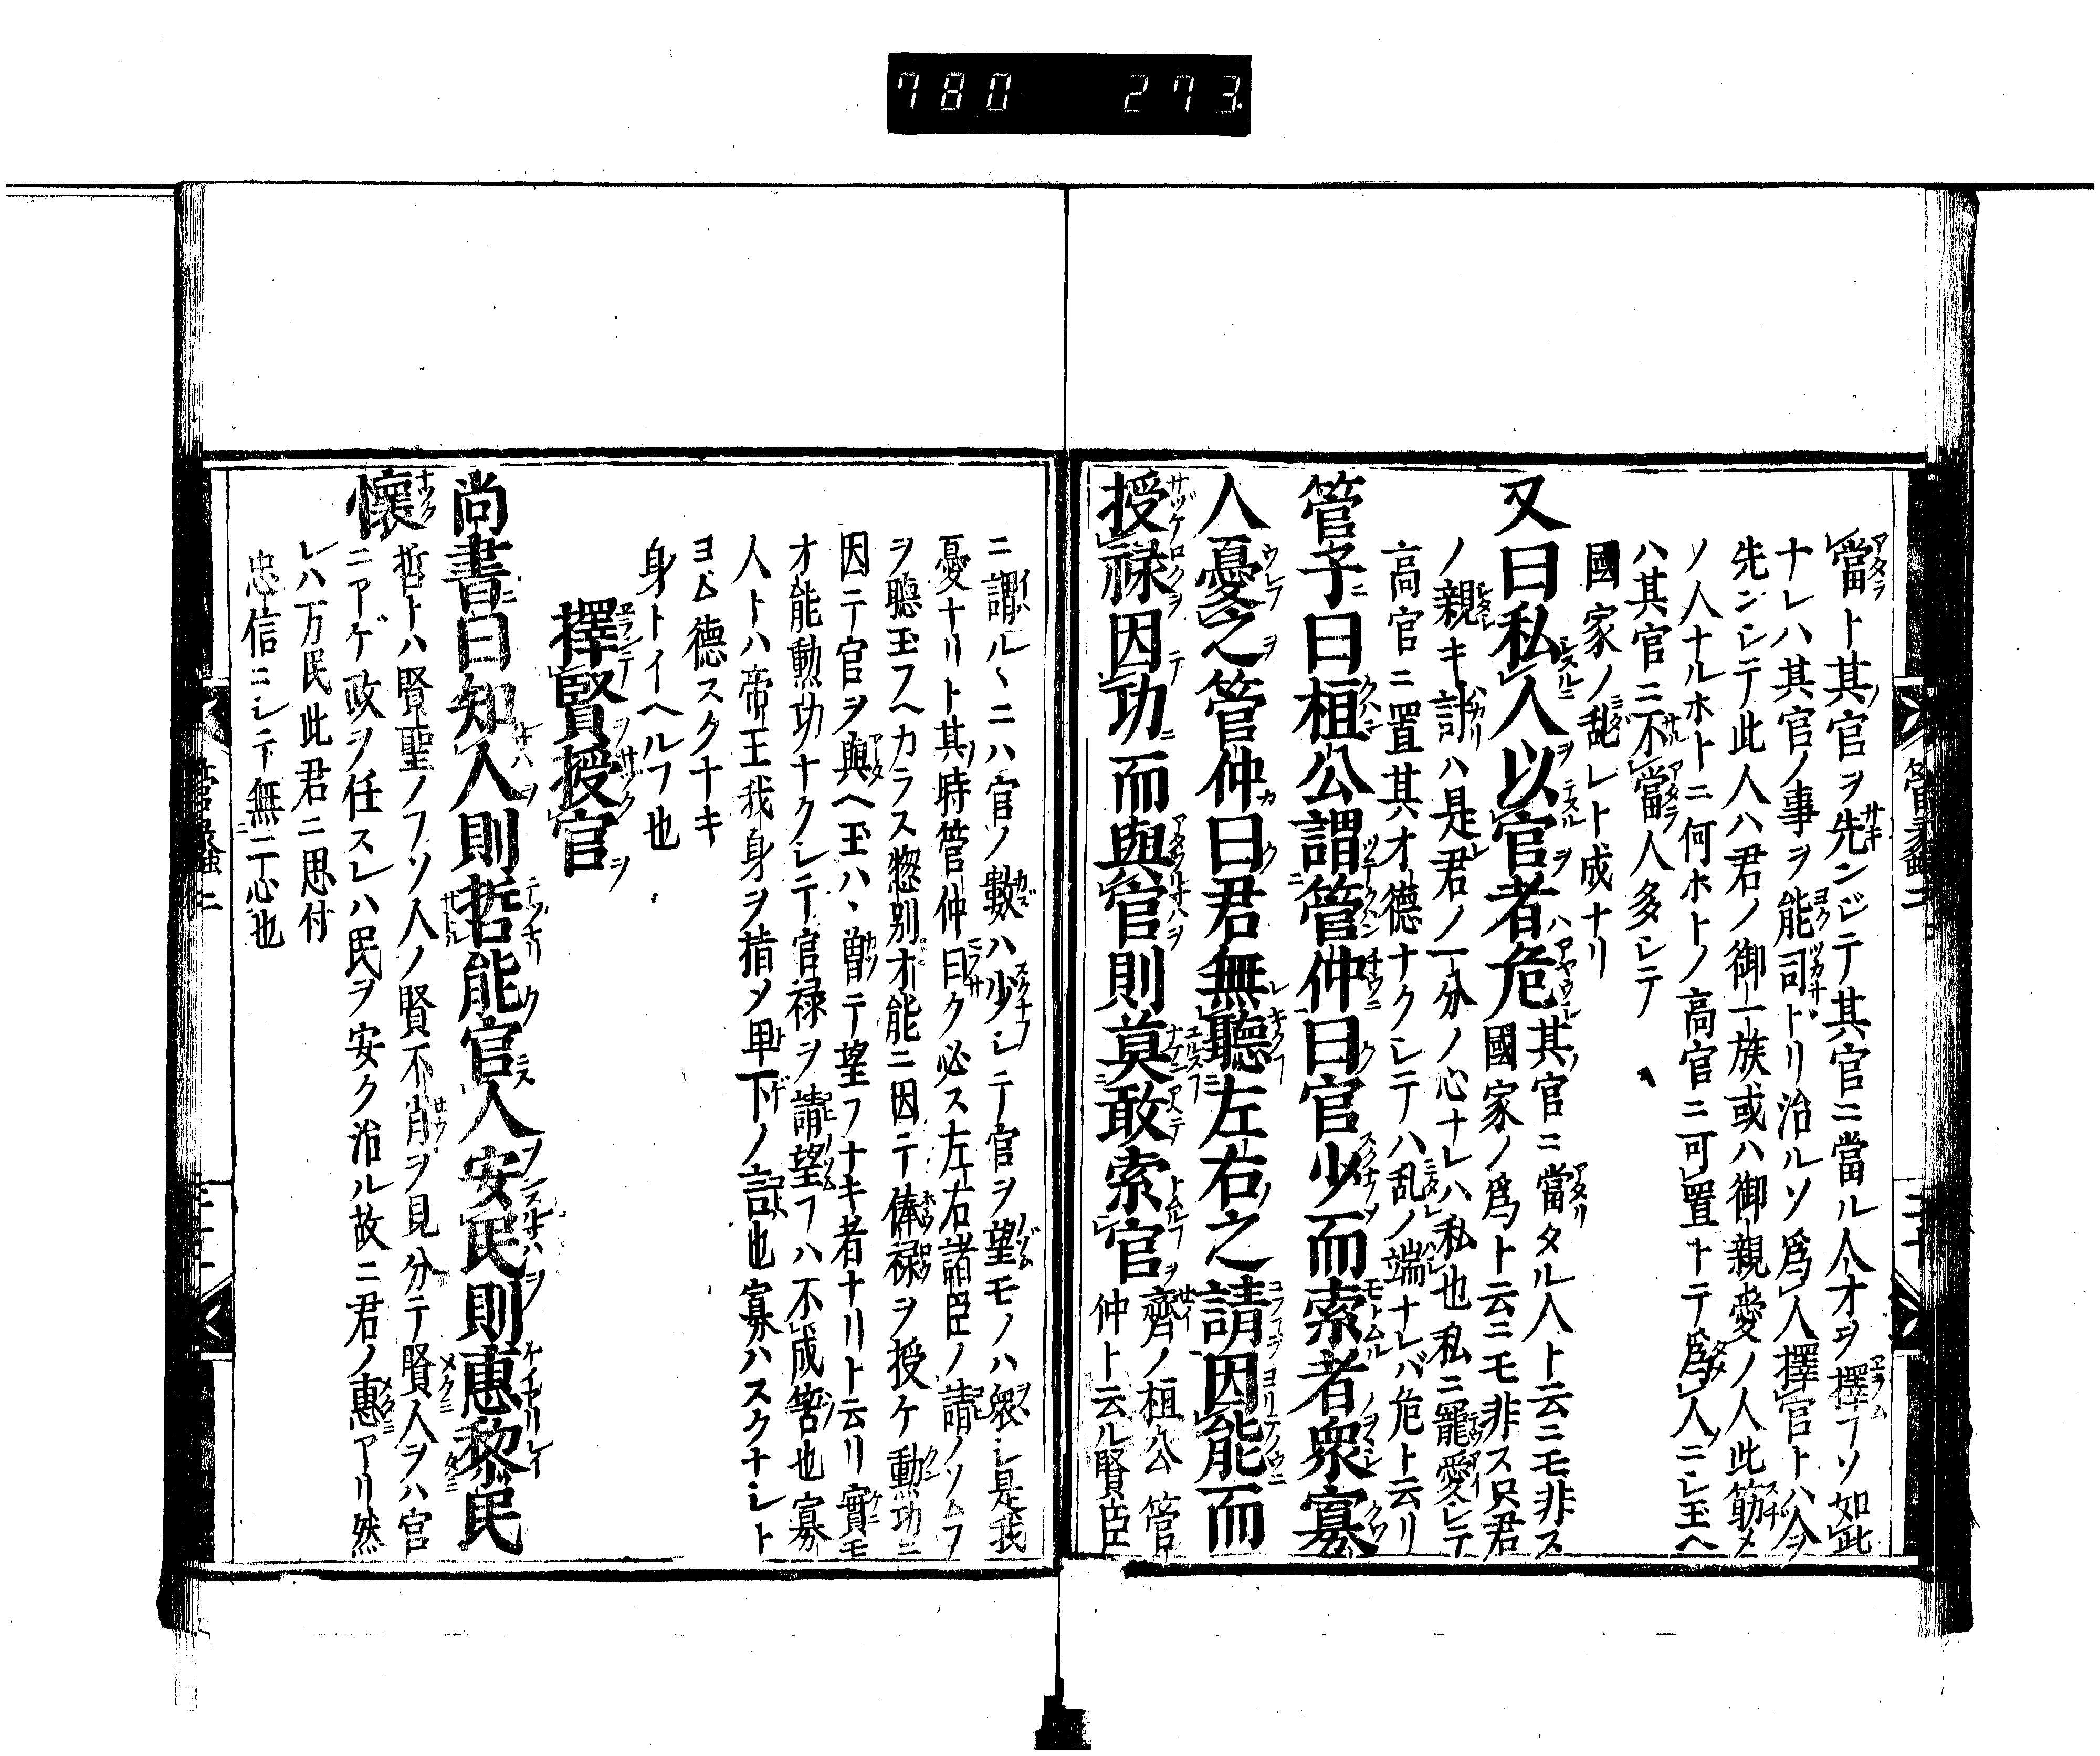 780 273
當ト其官ヲ先ンジテ其官ニ當ル人才ヲ擇フソ如此
ナレハ其官ノ事ヲ能司トリ治ルソ爲人擇官トハ人ヲ
先ンシテ此人ハ君ノ御一族或ハ御親愛ノ人此筋メ
ソ人ナルホトニ何ホトノ高官ニ可置トテ爲人ニシ玉ヘ
ハ其官ニ不當人多シテ
國家ノ亂レト成ナリ
又曰私人以官者危其官ニ當タル人ト云ニモ非ス
國家ノ爲ト云ニモ非ス只君
ノ親キ討ハ是君ノ一分ノ心ナレハ私也私ニ寵愛シテ
高官ニ置其才德ナクシテハ乱ノ端ナレバ危ト云リ
管子曰桓公謂管仲曰官少而索者衆寡
人憂之管仲曰君無聽左右之請因能而
授禄因功而與官則莫敢索官齊ノ桓公管
仲ト云ル賢臣
ニ謂ルヽニハ官ノ數ハ少シテ官ヲ望モノハ衆シ是我
憂ナリト其時管仲曰ク必ス左右諸臣ノ請ノソムフ
ヲ聽玉フヘカラス惣別才能ニ因テ俸禄ヲ授ケ勲功ニ
因テ官ヲ與ヘ玉ハヽ曽テ望フナキ者ナリト云リ實モ
才能勲功ナクシテ官禄ヲ請望フハ不成筈也寡
人トハ帝王我身ヲ指メ卑下ノ詞也寡ハスクナシト
ヨム德スクナキ
身トイヘルフ也
擇賢授官
尚書曰知人則哲能官人安民則惠黎民
懷
哲トハ賢聖ノフソ人ノ賢不肖ヲ見分テ賢人ヲハ官
ニアゲ政ヲ任スレハ民ヲ安ク治ル故ニ君ノ惠アリ然
レハ万民此君ニ思付
忠信ニシテ無二心也